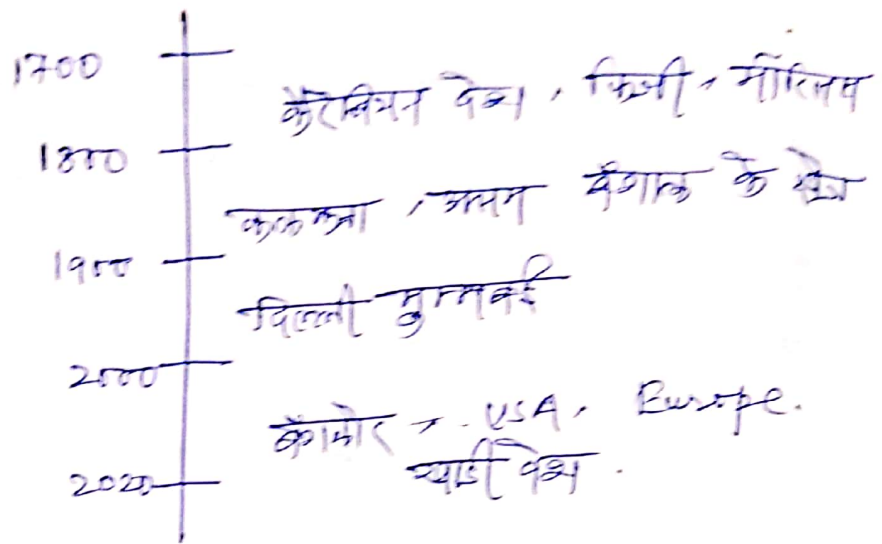 1700
कैरेबियन देश, फिजी, मॉरिशस
1800
कलकत्ता, असम बंगाल के क्षेत्र
1900
दिल्ली मुम्बई
2000
बैंगलोर, USA, Europe.
खाड़ी देश.
2020